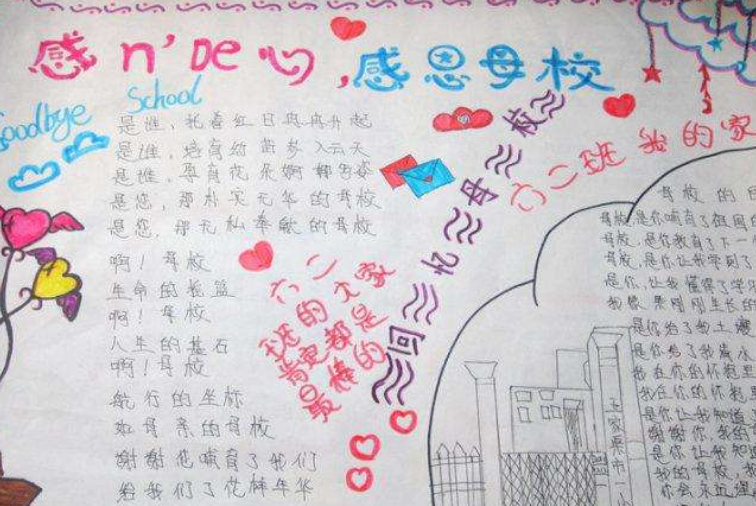 感n'De心,感恩母校
Goodbye School
是谁,托着红日冉冉升起
是谁,培育幼苗步入云天
是谁,孕育花朵婀娜多姿
是您,那朴实无华的母校
是您,那无私奉献的母校
啊!母校
生命的摇篮
啊!母校
人生的基石
啊!母校
航行的坐标
如母亲的母校
谢谢您哺育了我们
给我们了花样年华
六二
班的大家
肯定都是
最棒的
回忆母校
六二班 我的家
母校的
母校,是你哺育了祖国
母校,是你教育了下一
母校,是你让我学到了
是你,让我懂得了学
刚刚生长
是你给了我土壤
是你给了我
我在你的怀抱里
我在你的怀抱
是你让我知道
谢谢你,我的
是你让我知
我的母校
你会永远